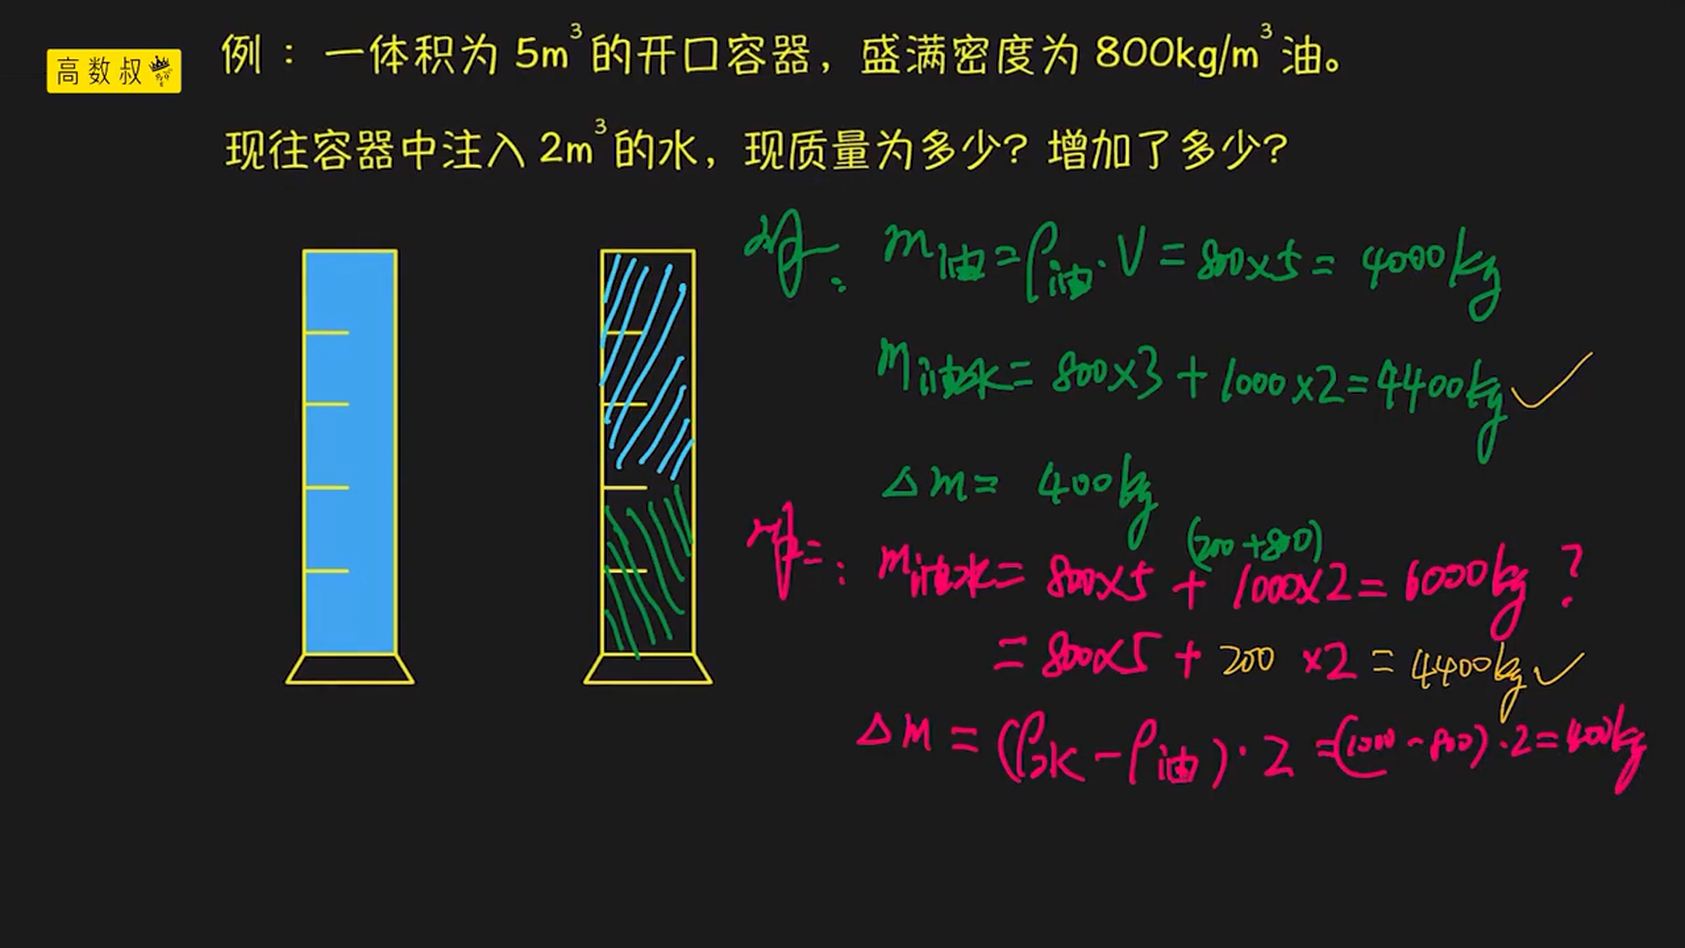 高数叔
例：一体积为5m³的开口容器，盛满密度为800kg/m³油。
现往容器中注入2m³的水，现质量为多少？增加了多少？
解: m油=ρ油·V=800×5=4000kg
m油水=800×3+1000×2=4400kg✓
Δm=400kg
(200+800)
解二: m油水=800×5+1000×2=6000kg?
=800×5+200×2=4400kg✓
Δm=(ρ水-ρ油)·2=(1000-800)·2=400kg